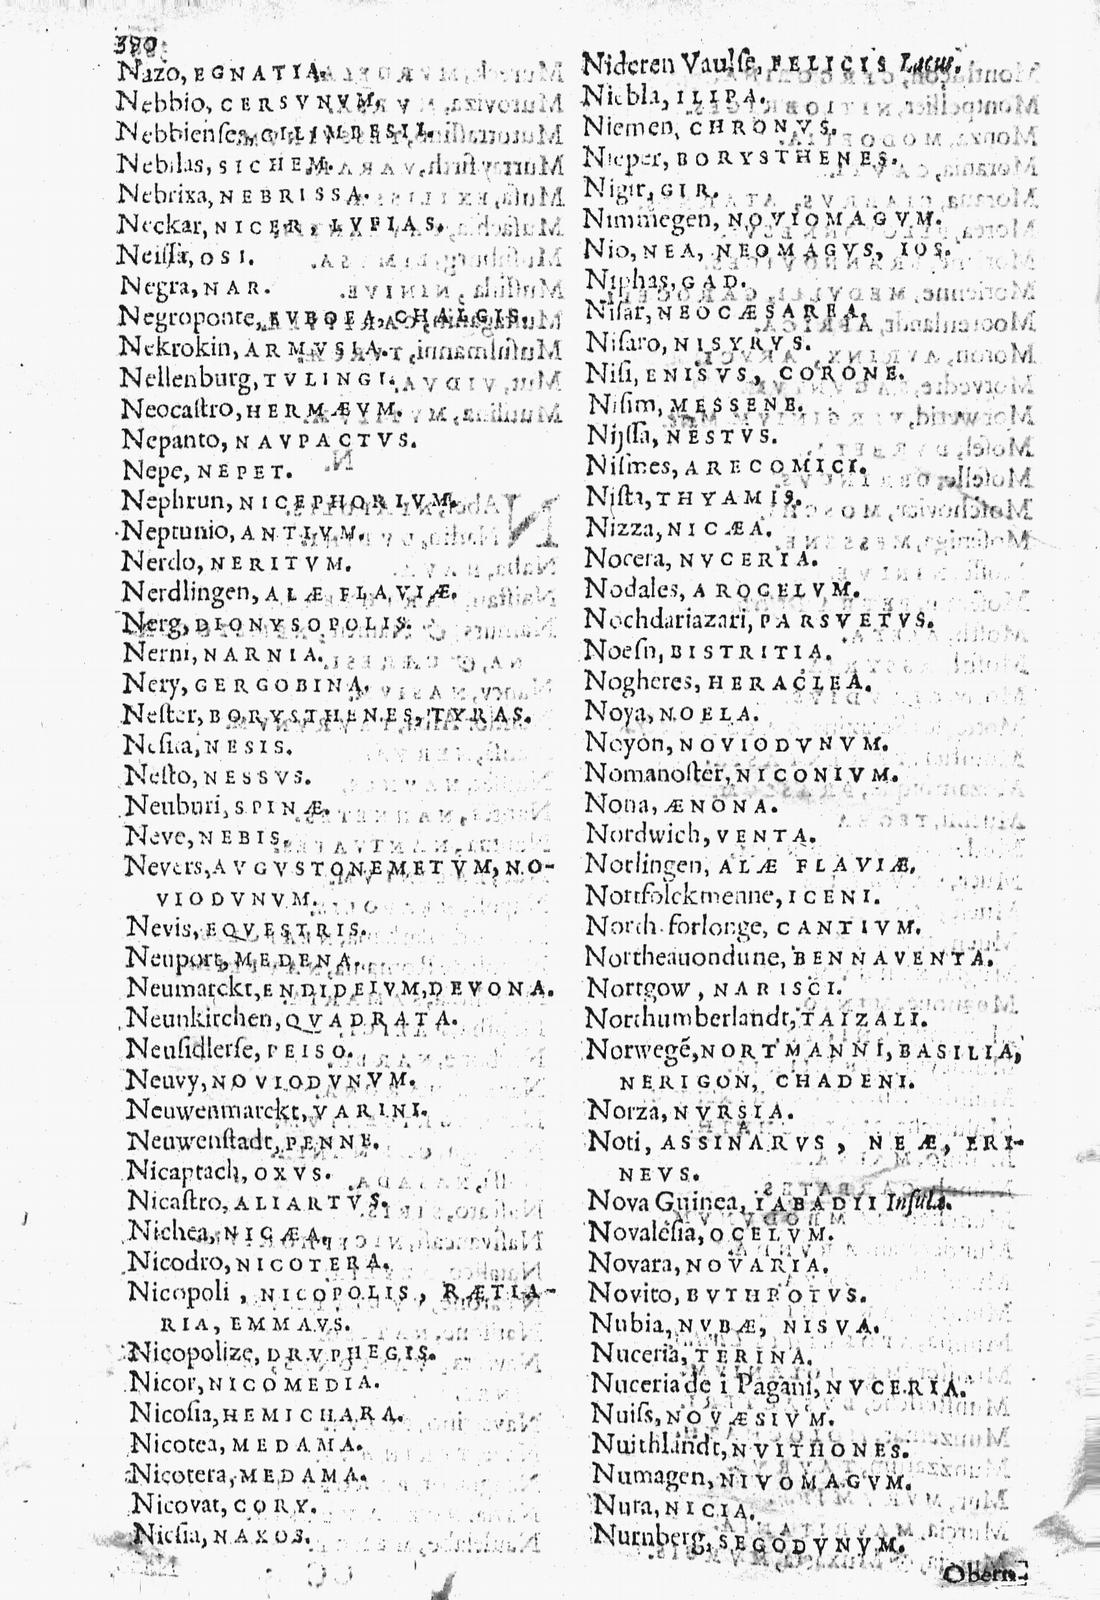 380
Nazo, EGNATIA.
Nebbio, CERSVNVM.
Nebbiense, COLIMBESII.
Nebilas, SICHEM.
Nebrixa, NEBRISSA.
Neckar, NICER, LVPIAS.
Neissa, OSI.
Negra, NAR.
Negroponte, EVBOEA, CHALGIS.
Nekrokin, ARMVSIA.
Nellenburg, TVLINGI.
Neocastro, HERMÆVM.
Nepanto, NAVPACTVS.
Nepe, NEPET.
Nephrun, NICEPHORIVM.
Neptunio, ANTIVM.
Nerdo, NERITVM.
Nerdlingen, ALÆ FLAVIÆ.
Nerg, DIONYSOPOLIS.
Nerni, NARNIA.
Nery, GERGOBINA.
Nester, BORYSTHENES, TYRAS.
Nesita, NESIS.
Nesto, NESSVS.
Neuburi, SPINÆ.
Neve, NEBIS.
Nevers, AVGVSTONEMETVM, NO-
VIODVNVM.
Nevis, EQVESTRIS.
Neuport, MEDENA.
Neumarckt, ENDIDEIVM, DEVONA.
Neunkirchen, QVADRATA.
Neusidlerse, PEISO.
Neuvy, NOVIODVNVM.
Neuwenmarckt, VARINI.
Neuwenstadt, PENNE.
Nicaptach, OXVS.
Nicastro, ALIARTVS.
Nichea, NICÆA.
Nicodro, NICOTERA.
Nicopoli, NICOPOLIS, RÆTIA-
RIA, EMMAVS.
Nicopolize, DRVPHEGIS.
Nicor, NICOMEDIA.
Nicosia, HEMICHARA.
Nicotea, MEDAMA.
Nicotera, MEDAMA.
Nicovat, CORY.
Nicsia, NAXOS.
Nideren Vaulse, FELICIS Lacus.
Niebla, ILIPA.
Niemen, CHRONVS.
Nieper, BORYSTHENES.
Nigir, GIR.
Nimmegen, NOVIOMAGVM.
Nio, NEA, NEOMAGVS, IOS.
Niphas, GAD.
Nisar, NEOCÆSAREA.
Nisaro, NISYRVS.
Nisi, ENISVS, CORONE.
Nisim, MESSENE.
Nijssa, NESTVS.
Nismes, ARECOMICI.
Nista, THYAMIS.
Nizza, NICÆA.
Nocera, NVCERIA.
Nodales, AROCELVM.
Nochdariazari, PARSVETVS.
Noesn, BISTRITIA.
Nogheres, HERACLEA.
Noya, NOELA.
Noyon, NOVIODVNVM.
Nomanoster, NICONIVM.
Nona, ÆNONA.
Nordwich, VENTA.
Norlingen, ALÆ FLAVIÆ.
Nortfolckmenne, ICENI.
North-forlonge, CANTIVM.
Northeauondune, BENNAVENTA.
Nortgow, NARISCI.
Northumberlandt, TAIZALI.
Norwegẽ, NORTMANNI, BASILIA,
NERIGON, CHADENI.
Norza, NVRSIA.
Noti, ASSINARVS, NEÆ, ERI-
NEVS.
Nova Guinea, IABADII Insula.
Novalésia, OCELVM.
Novara, NOVARIA.
Novito, BVTHROTVS.
Nubia, NVBÆ, NISVA.
Nuceria, TERINA.
Nuceria de i Pagani, NVCERIA.
Nuiss, NOVÆSIVM.
Nuithlandt, NVITHONES.
Numagen, NIVOMAGVM.
Nura, NICIA.
Nurnberg, SEGODVNVM.
Obern-